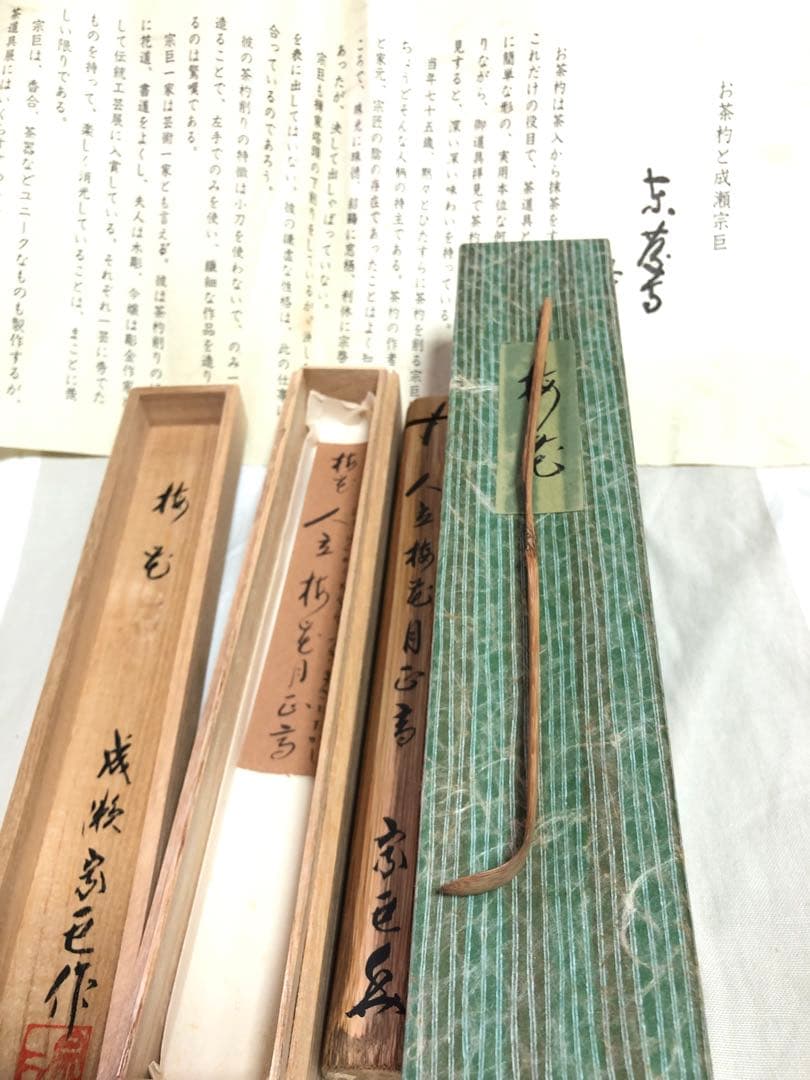 お茶杓と成瀬宗巨
お茶杓は茶入から抹茶をす
これだけの役目で、茶道具と
に簡単な形の、実用本位な何
りながら、御道具拝見で茶杓
見すると、深い深い味わいを持っている。
当年七十五歳、黙々とひたすらに茶杓を削る宗巨
ちょうどそんな人柄の持主である。茶杓の作者
と家元、宗匠の陰の存在であったことはよく知
ころで、珠光に珠徳、紹鷗に窓栖、利休に宗春
あったが、決して出しゃばっていない。
宗巨も 塔頭の下削りをしているが、決し
を表に出してはいない。彼の謙虚な性格は、此の仕事に
合っているのであろう。
彼の茶杓削りの特徴は小刀を使わないで、のみ一
造ることで、左手でのみを使い、繊細な作品を造り
るのは驚嘆である。
宗巨一家は芸術一家とも言える。彼は茶杓削りの
に花道、書道をよくし、夫人は木彫、令嬢は彫金作家
して伝統工芸展に入賞している。それぞれ一芸に秀でた
ものを持って、楽しく消光していることは、まことに羨
しい限りである。
宗巨は、香合、茶器などユニークなものも製作するが、
茶道具展にはいくら
梅花
人立梅花月正高
宗巨
梅花
人立梅花月正高
梅花
成瀬宗巨作